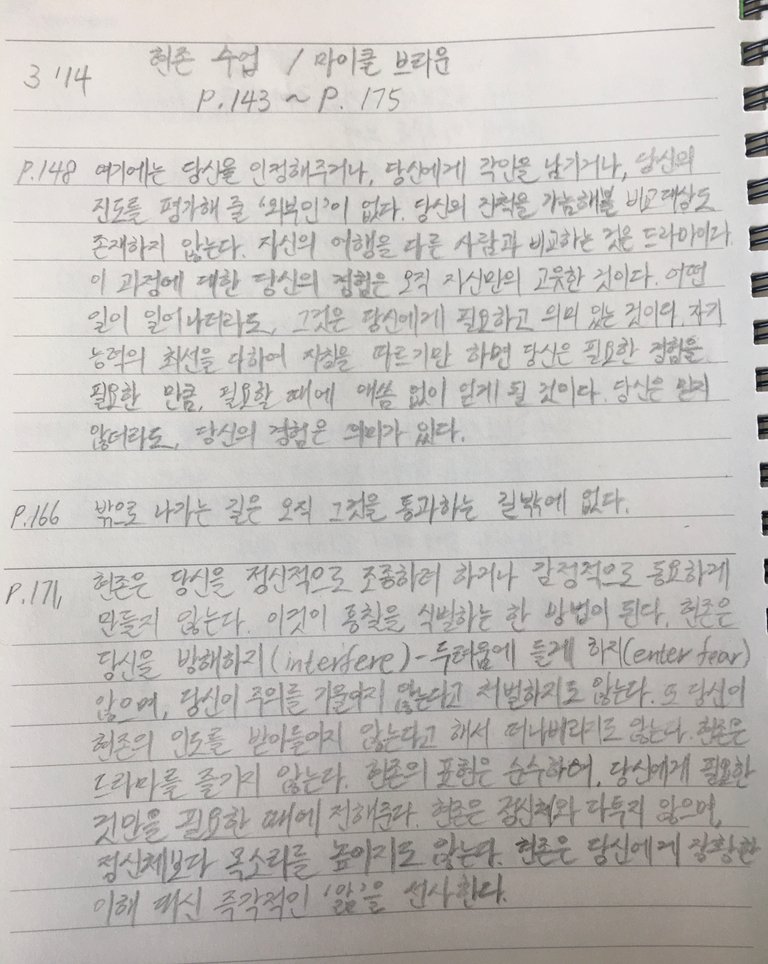 3/14 현존 수업 / 마이클 브라운
P.143 ~ P. 175
P.148 여기에는 당신을 인정해주거나, 당신에게 각인을 남기거나, 당신의
진도를 평가해 줄 '외부인'이 없다. 당신의 진척을 가늠해볼 비교대상도
존재하지 않는다. 자신의 여행을 다른 사람과 비교하는 것은 드라마이다.
이 과정에 대한 당신의 경험은 오직 자신만의 고유한 것이다. 어떤
일이 일어나더라도, 그것은 당신에게 필요하고 의미 있는 것이다. 자기
능력의 최선을 다하여 지침을 따르기만 하면 당신은 필요한 경험을
필요한 만큼, 필요할 때에 애씀 없이 얻게 될 것이다. 당신은 믿지
않더라도, 당신의 경험은 의미가 있다.
P.166 밖으로 나가는 길은 오직 그것을 통과하는 길밖에 없다.
P.171, 현존은 당신을 정신적으로 조종하려 하거나 감정적으로 동요하게
만들지 않는다. 이것이 통찰을 식별하는 한 방법이 된다. 현존은
당신을 방해하지(interfere)-두려움에 들게 하지(enter fear)
않으며, 당신이 주의를 기울이지 않는다고 처벌하지도 않는다. 또 당신이
현존의 인도를 받아들이지 않는다고 해서 떠나버리지도 않는다. 현존은
드라마를 즐기지 않는다. 현존의 표현은 순수하여, 당신에게 필요한
것만을 필요한 때에 전해준다. 현존은 정신체와 다투지 않으며,
정신체보다 목소리를 높이지도 않는다. 현존은 당신에게 장황한
이해 대신 즉각적인 '앎'을 선사한다.